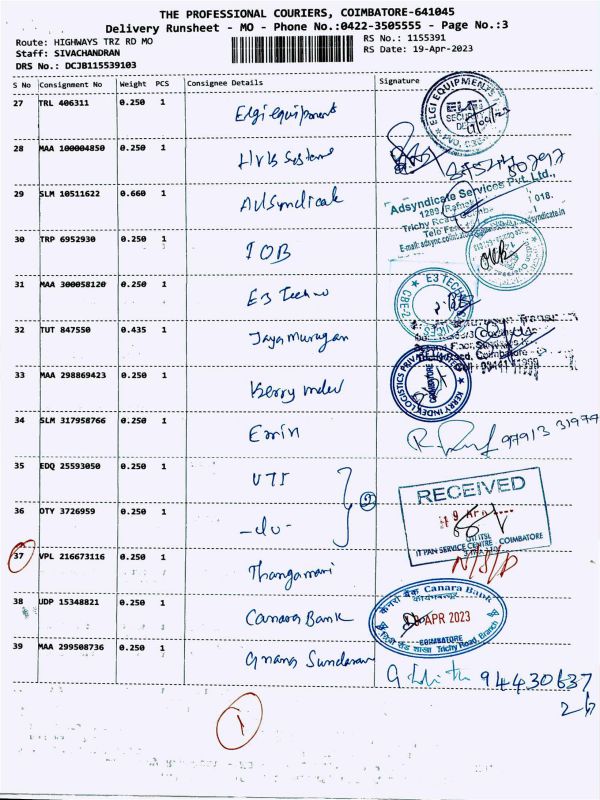 THE PROFESSIONAL COURIERS, COIMBATORE-641045
Delivery Runsheet - MO - Phone No.:0422-3505555 - Page No.:3
Route: HIGHWAYS TRZ RD MO
RS No.: 1155391
Staff: SIVACHANDRAN
RS Date: 19-Apr-2023
DRS No.: DCJB115539103
S No Consignment No Weight PCS Consignee Details Signature
27 TRL 406311 0.250 1 Elgi equipments
ELGI EQUIPMENTS
SECURITY
28 MAA 100004850 0.250 1 Systems
29 SLM 10511622 0.660 1 AdSyndicate
Adsyndicate Services Pvt. Ltd.,
1289,
Trichy Road,
30 TRP 6952930 0.250 1 IOB
31 MAA 300058120 0.250 1 E3 Techno
E3 TECH
CBE-2
32 TUT 847550 0.435 1 Jayamurugan
33 MAA 298869423 0.250 1 Kerry Index
KERRY INDEV LOGISTICS PRIVATE LIMITED
COIMBATORE
34 SLM 317958766 0.250 1
97913 31979
35 EDQ 25593050 0.250 1 UTI
36 OTY 3726959 0.250 1 -do- 2
RECEIVED
UTIITSL
IT PAN SERVICE CENTRE COIMBATORE
37 VPL 216673116 0.250 1 Thangamani
N/S/P
38 UDP 15348821 0.250 1 Canara Bank
केनरा बैंक Canara Bank
APR 2023
COIMBATORE
Trichy Road, Branch
39 MAA 299508736 0.250 1 Gnana Sundaram
94430637
26
1